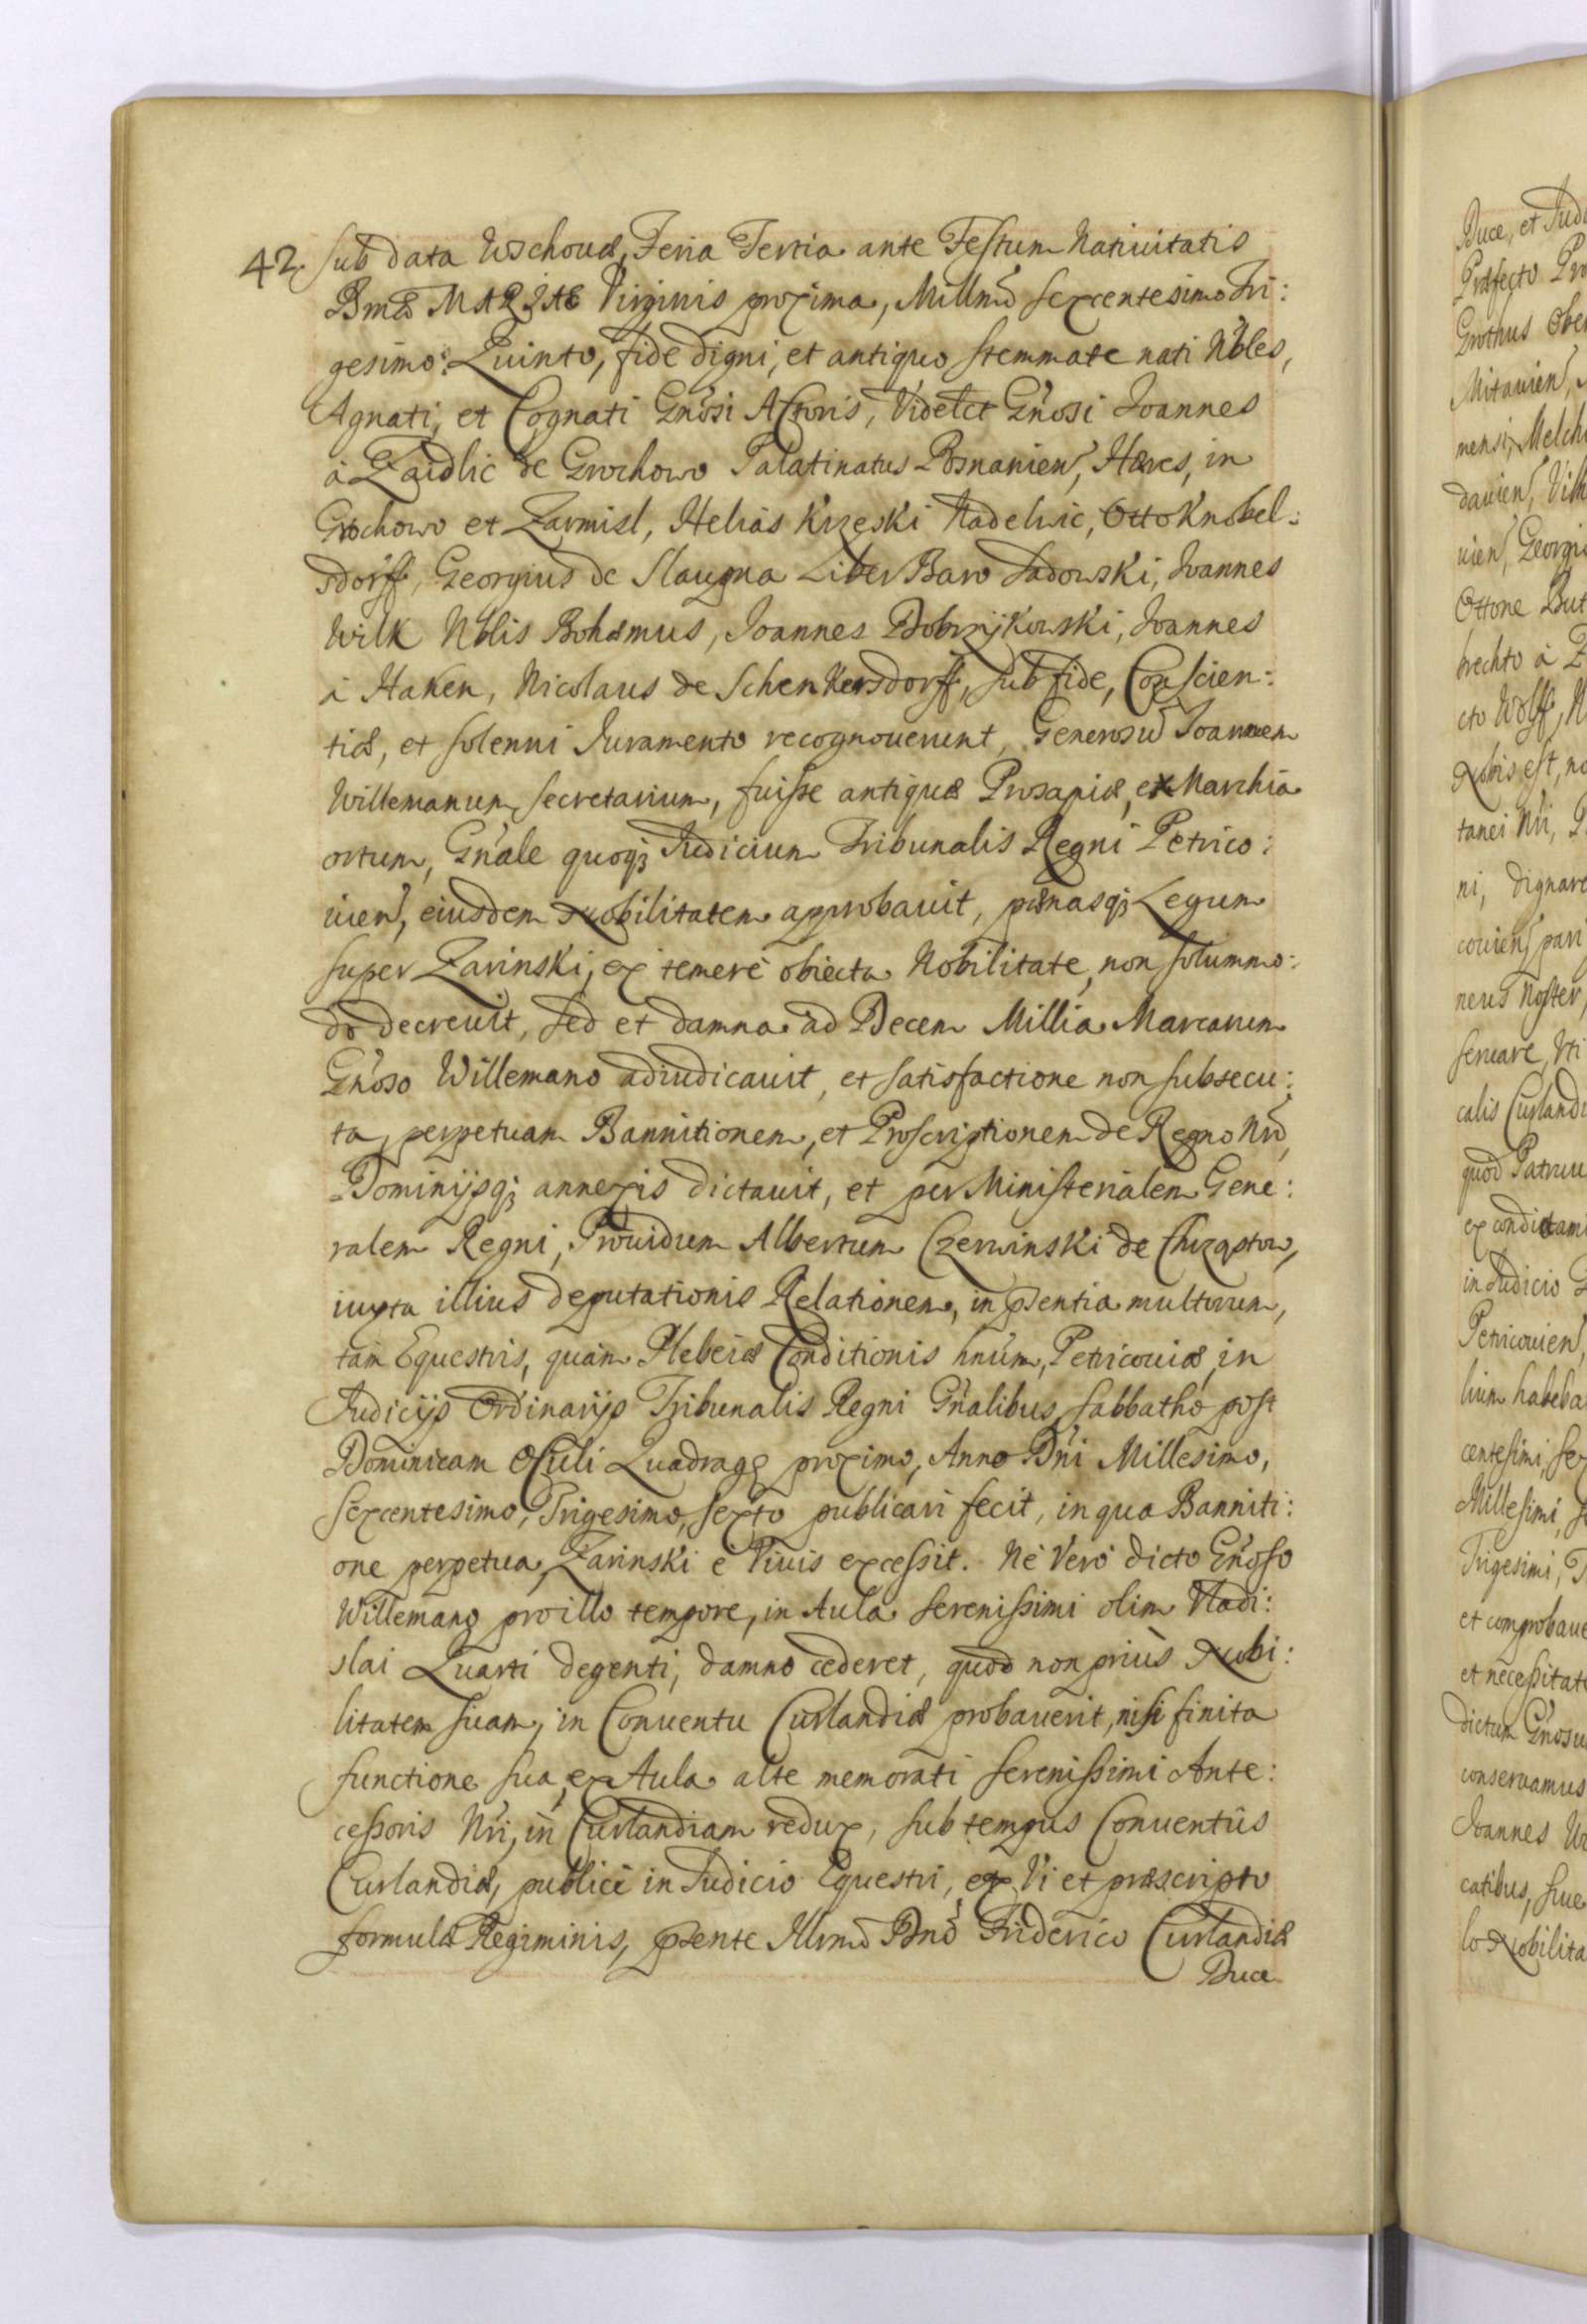 42. sub data Wschouæ, Feria Tertia ante Festum Natiuitatis
Bmæ MARIAE Virginis proxima, Millmo sexcentesimo Tri:
gesimo: Quinto, fide digni, et antiquo stemmate nati Nbles,
Agnati, et Cognati Gnosi Actoris, Videlct Gnosi Joannes
à Zaidlic de Grochowo Palatinatus Posnanien, Hæres, in
Grochowo et Zarmisl, Helias Krzęski Nadelwic, Otto Knobel:
sdorff, Georgius de Slaupna Liber Baro Sadowski, Joannes
Wilk Nblis Bohæmus, Joannes Dobrzÿkowski, Joannes
à Haken, Nicolaus de Schenkersdorff, sub fide, Conscien:
tiæ, et solenni Juramento recognouerunt, Generosū Joannem
Willemanum secretarium, fuisse antiquæ Prosapiæ, ex Marchia
ortum, Gnale quoqꝫ Judicium Tribunalis Regni Petrico:
uien, eiusdem Nobilitatem approbauit, pœnasqꝫ Legum
super Zarinski, ex temerè obiecta Nobilitate, non solummo:
do decreuit, sed et damna ad Decem Millia Marcarum
Gnoso Willemano adiudicauit, et satisfactione non subsecu:
ta, perpetuam Bannitionem, et Proscriptionem de Regno Nro,
Dominÿsqꝫ annexis dictauit, et per Ministerialem Gene:
ralem Regni, Prouidum Albertum Czerwinski de Chrząstow,
iuxta illius deputationis Relationem, in pſentia multorum,
tàm Equestris, quàm Plebeiæ Conditionis hnum, Petricouiæ, in
Judicÿs Ordinarÿs Tribunalis Regni Gnalibus, sabbatho post
Dominicam Oculi Quadragg proximo, Anno Dni Millesimo,
sexcentesimo, Trigesimo, sexto publicari fecit, in qua Banniti:
one perpetua, Zarinski è Viuis excessit. Nè Verò dicto Gnoso
Willemano pro illo tempore, in Aula serenissimi olim Vladi:
slai Quarti degenti, damno cederet, quod non priùs Nobi:
litatem suam, in Conuentu Curlandiæ probauerit, nisi finita
functione sua, ex Aula altè memorati serenissimi Ante:
cessoris Nri, in Curlandiam redux, sub tempus Conuentûs
Curlandiæ, publicè in Judicio Equestri, ex Vi et præscripto
formulæ Regiminis, pſente Illrmo Dno Friderico Curlandiæ
Duce
Duce, et Judi
Præfecto Pro
Grothus Ober
Mitauien,
mensi, Melch
dauien, Vilh
uien, Georgi
Ottone But
brechto à Z
cto Wolff, N
Nobis est, no
tanei Nri, P
ni, dignare
couien, pari
neus Noster,
seruare, Vti
calis Curlandi
quod Patruu
ex condictam
in Judicio G
Petricouien,
lium habeba
centesimi, sex
Millesimi, s
Trigesimi, T
et comprobaue
et necessitat
dictum Gnosu
conseruamus
Joannes W
catibus, siue
lo Nobilita